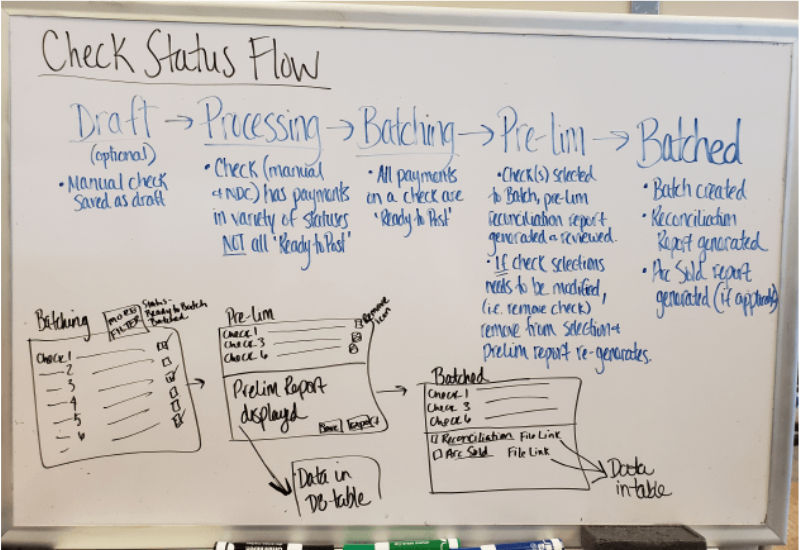 Check Status Flow
Draft → Processing → Batching → Pre-lim → Batched
(optional)
• Manual check
Saved as draft
• Check (manual
+ NDC) has payments
in variety of statuses
NOT all "Ready to Post"
• All payments
on a check are
"Ready to Post"
• Check(s) selected
to Batch, pre-lim
reconciliation report
generated & reviewed.
• If check selections
needs to be modified,
(i.e. remove check)
remove from selection +
Prelim report re-generates.
• Batch created
• Reconciliation
Report generated
• Arc Sold report
generated (if applicable)
Batching
MORE
FILTER
Status-
Ready to Batch
Batched
Check 1
2
3
4
5
6
Pre-lim
Remove
icon
Check 1
Check 3
Check 6
Prelim Report
displayd
Data in
DB table
Batched
Check 1
Check 3
Check 6
Reconciliation File Link
Arc Sold File Link
Data
in table